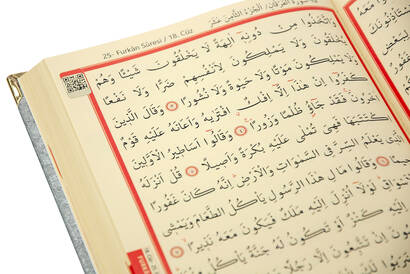 سورة الفرقان / الجزء الثامن عشر
25- Furkân Sûresi / 18. Cüz
وَاتَّخَذُوا مِنْ دُونِهٖٓ اٰلِهَةً لَا يَخْلُقُونَ شَيْـًٔا وَهُمْ
يُخْلَقُونَ وَلَا يَمْلِكُونَ لِاَنْفُسِهِمْ ضَرًّا وَلَا نَفْعًا
وَلَا يَمْلِكُونَ مَوْتًا وَلَا حَيٰوةً وَلَا نُشُورًا ٣ وَقَالَ الَّذٖينَ
كَفَرُٓوا اِنْ هٰذَٓا اِلَّٓا اِفْكٌ افْتَرٰيهُ وَاَعَانَهُ عَلَيْهِ قَوْمٌ
اٰخَرُونَ فَقَدْ جَٓاؤُ ظُلْمًا وَزُورًا ٤ وَقَالُٓوا اَسَاطٖيرُ الْاَوَّلٖينَ
اكْتَتَبَهَا فَهِيَ تُمْلٰى عَلَيْهِ بُكْرَةً وَاَصٖيلًا ٥ قُلْ اَنْزَلَهُ
الَّذٖي يَعْلَمُ السِّرَّ فِي السَّمٰوَاتِ وَالْاَرْضِ اِنَّهُ كَانَ غَفُورًا
وَقَالُوا مَالِ هٰذَا الرَّسُولِ يَأْكُلُ الطَّعَامَ وَيَمْشٖي
الْاَسْوَاقِ لَوْلَٓا اُنْزِلَ اِلَيْهِ مَلَكٌ فَيَكُونَ مَعَهُ نَذٖيرًا ٧
اِلَيْهِ كَنْزٌ اَوْ تَكُونُ لَهُ جَنَّةٌ يَأْكُلُ
اِنْ تَتَّبِعُونَ اِلَّا